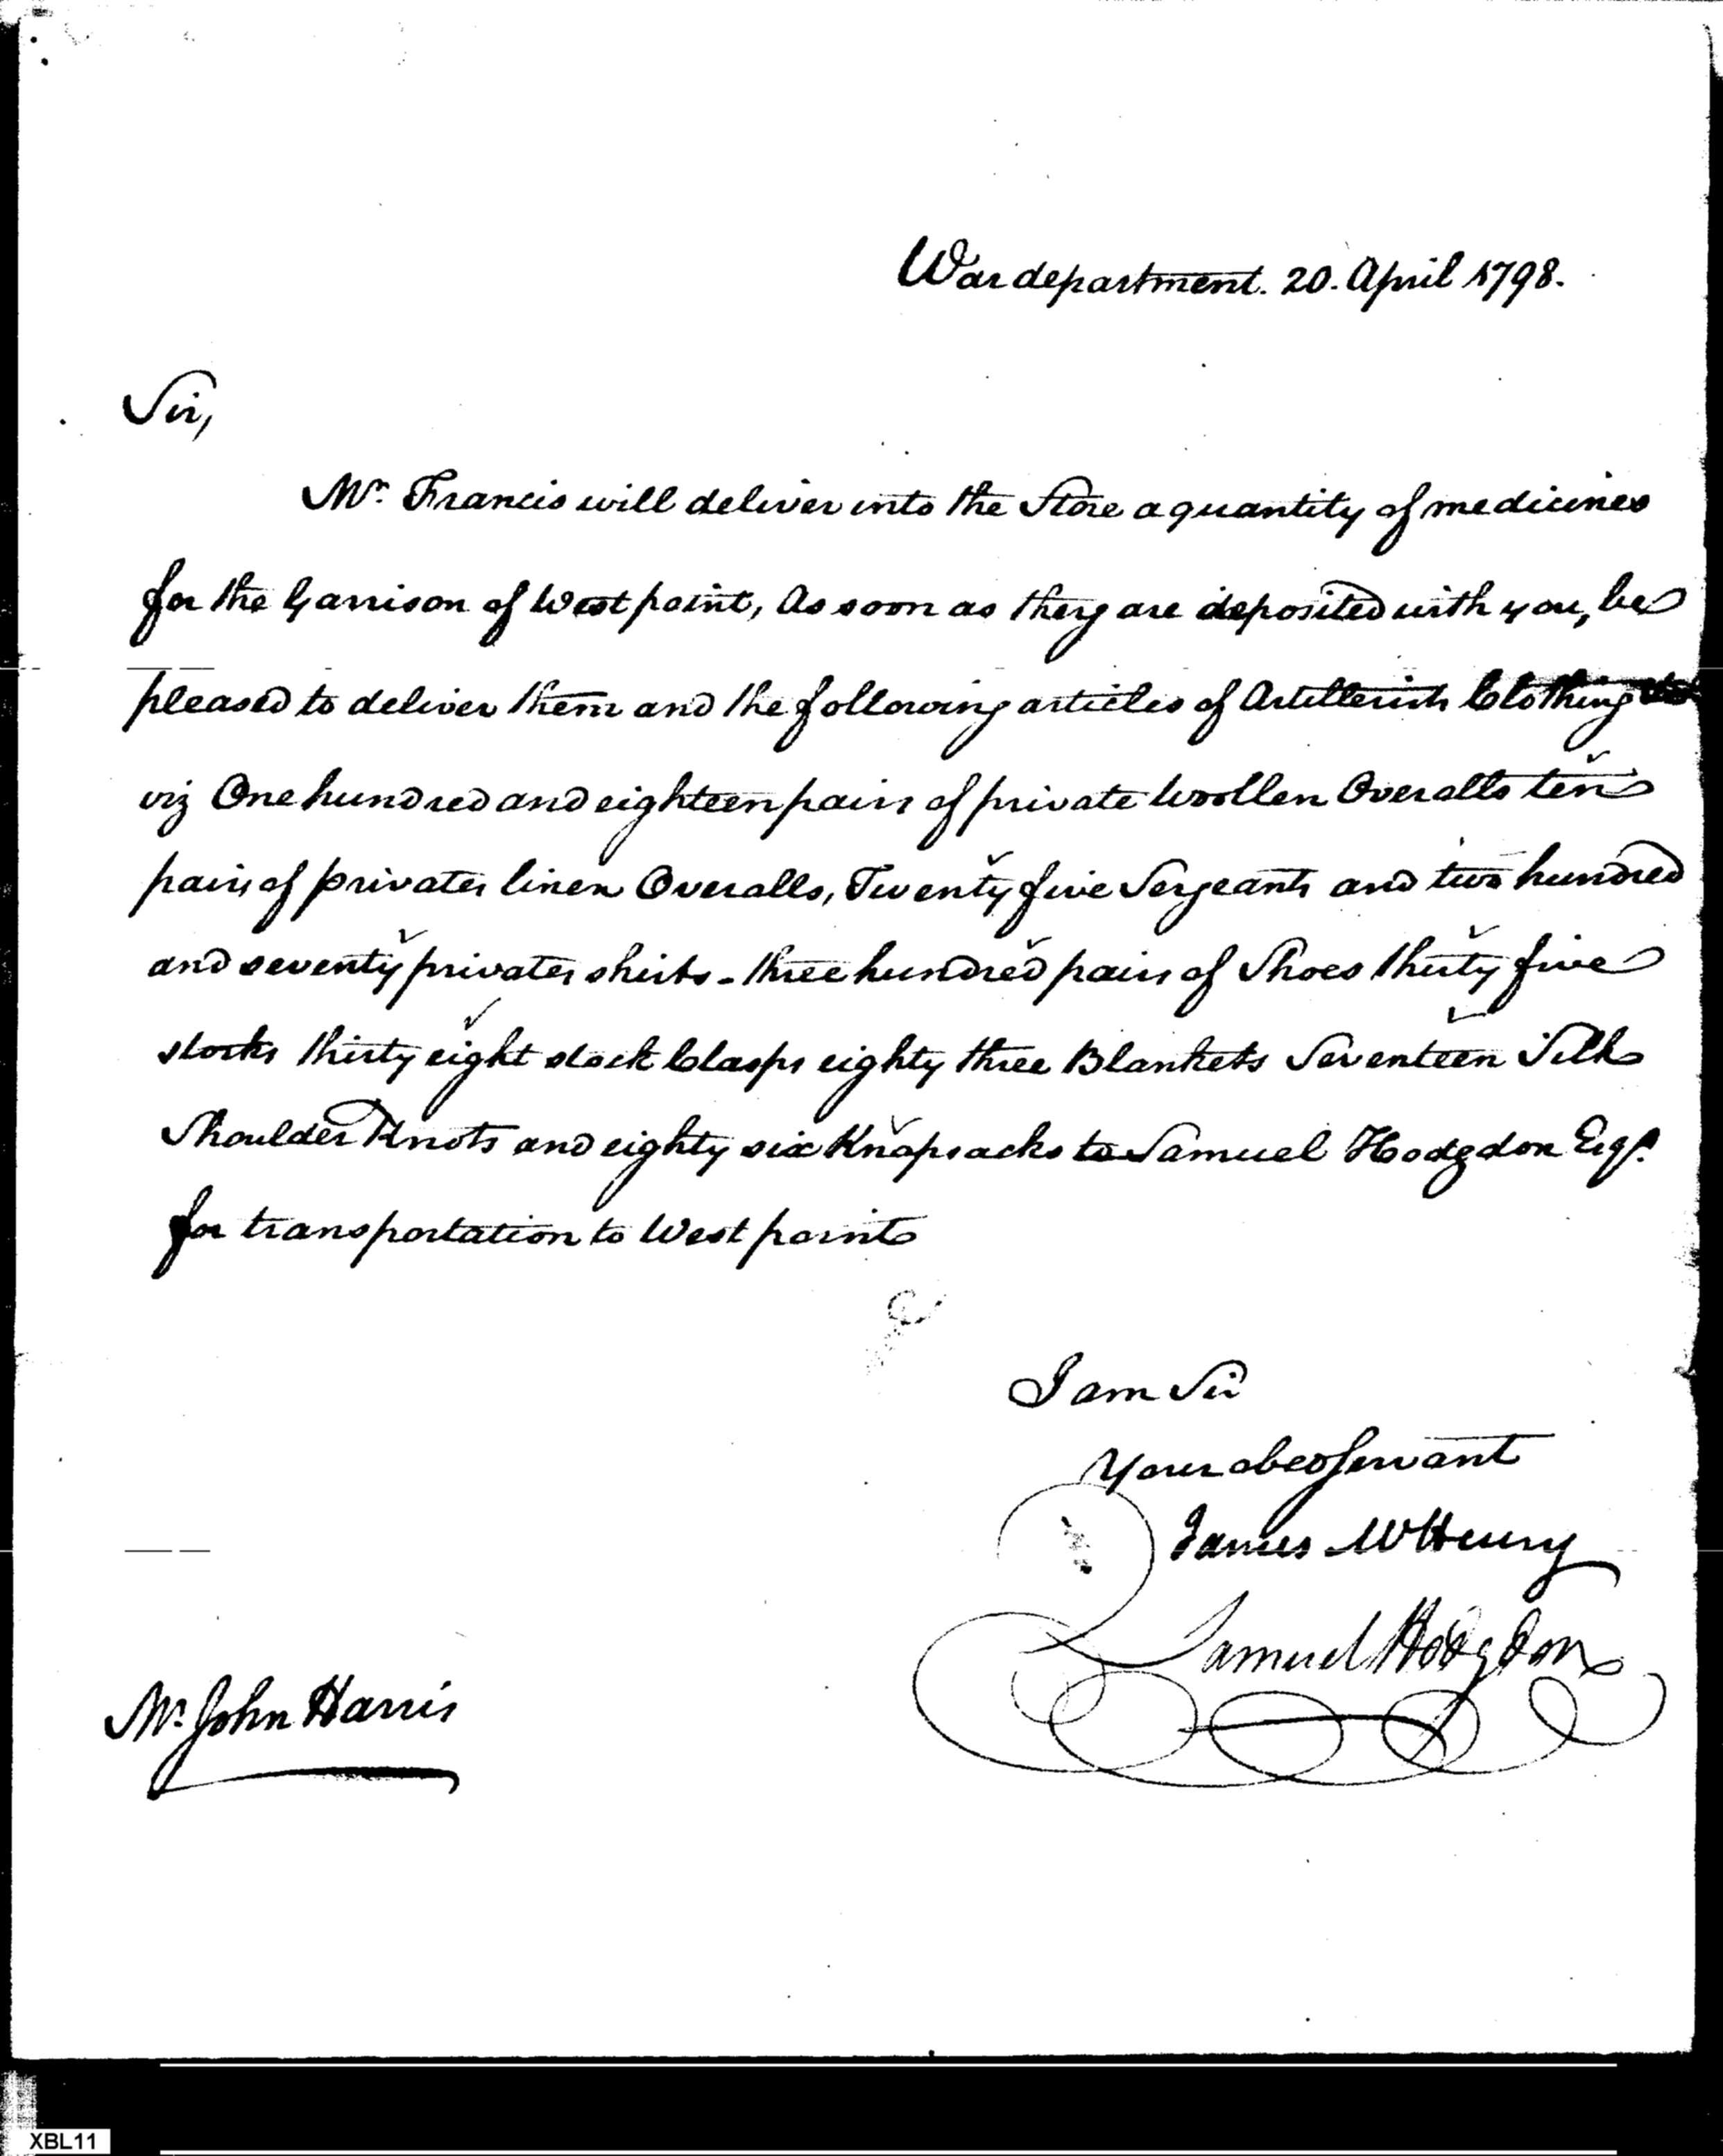 War department. 20. April 1798.
Sir,
Mr. Francis will deliver into the Store a quantity of medicines
for the Garrison of West point, As soon as they are deposited with you, be
pleased to deliver them and the following articles of Artillerists Clothing
viz One hundred and eighteen pairs of private Woollen Overalls ten
pairs of privates linen Overalls, Twenty five Sergeants and two hundred
and seventy privates shirts - three hundred pairs of Shoes thirty five
stocks thirty eight stock Clasps eighty three Blankets Seventeen Silk
Shoulder Knots and eighty six Knapsacks to Samuel Hodgdon Esqr.
for transportation to West point
I am Sir
Your obed Servant
James McHenry
Samuel Hodgdon
Mr. John Harris
XBL11